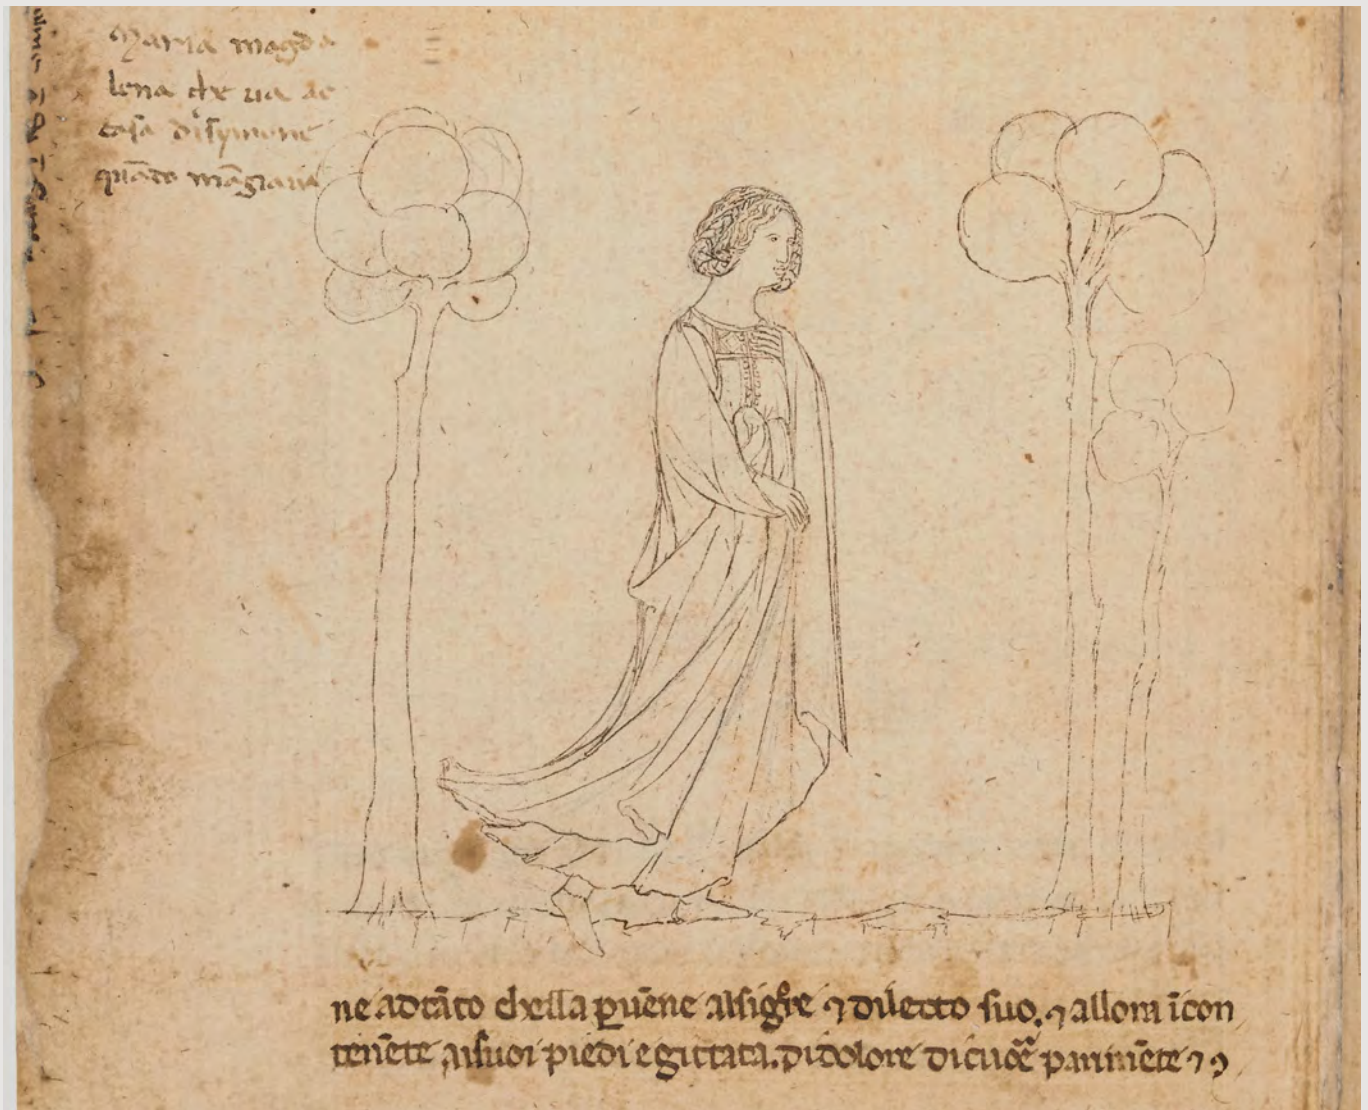 Maria magda
lena che ua ae
casa di symone
quādo māgiaua
ne adtāto chella ꝑuēne alsigre ⁊ diletto suo. ⁊ allora īcon
tenēte aisuoi piedi egittata. di dolore di cuore parimēte ⁊ ɔ